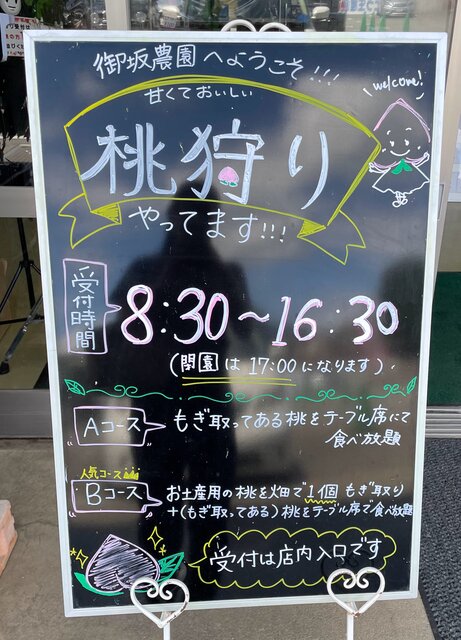 御坂農園へようこそ!!!
甘くておいしい
welcome!
桃狩り
やってます!!!
受付時間
8:30~16:30
(閉園は17:00になります)
Aコース
もぎ取ってある桃をテーブル席にて
食べ放題
人気コース
Bコース
お土産用の桃を畑で1個もぎ取り
+(もぎ取ってある)桃をテーブル席で食べ放題
受付は店内入口です